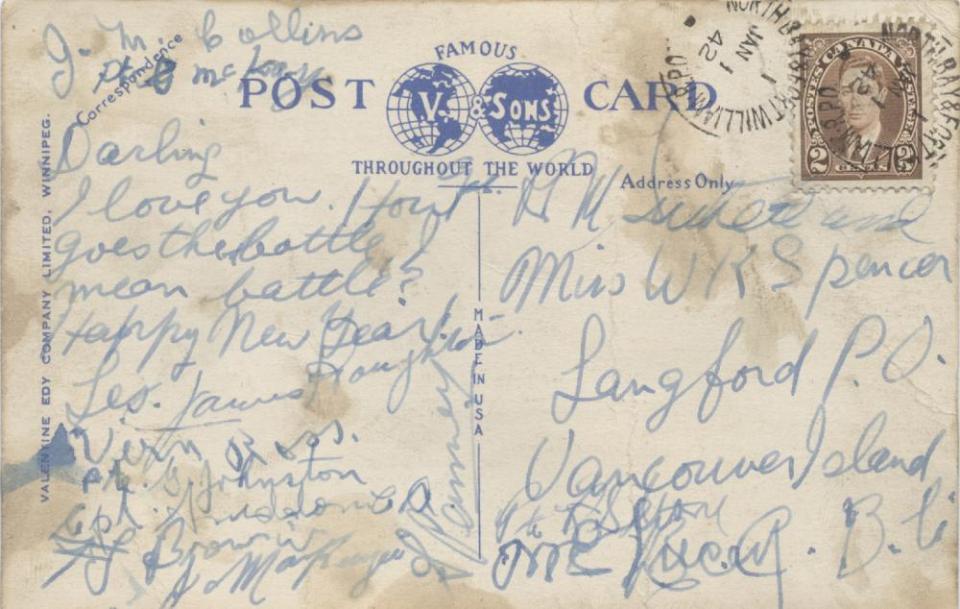 J. M. Collins
Correspondence
FAMOUS
POST CARD
V. & SONS
THROUGHOUT THE WORLD
Address Only
NORTH BAY & FORT WILLIAM R.P.O.
JAN 1
42
NORTH BAY & FORT WILLIAM R.P.O.
POSTES CANADA POSTAGE
2 CENTS 2
VALENTINE EDY COMPANY LIMITED, WINNIPEG.
MADE IN USA
Darling
I love you. How
goes the battle I
mean battle?
Happy New Year!
Les. James
Vern
Pte. S. Johnston
Cpl.
Brown
H M
Miss W K Spencer
Langford P.O.
Vancouver Island
B.C.
Pte